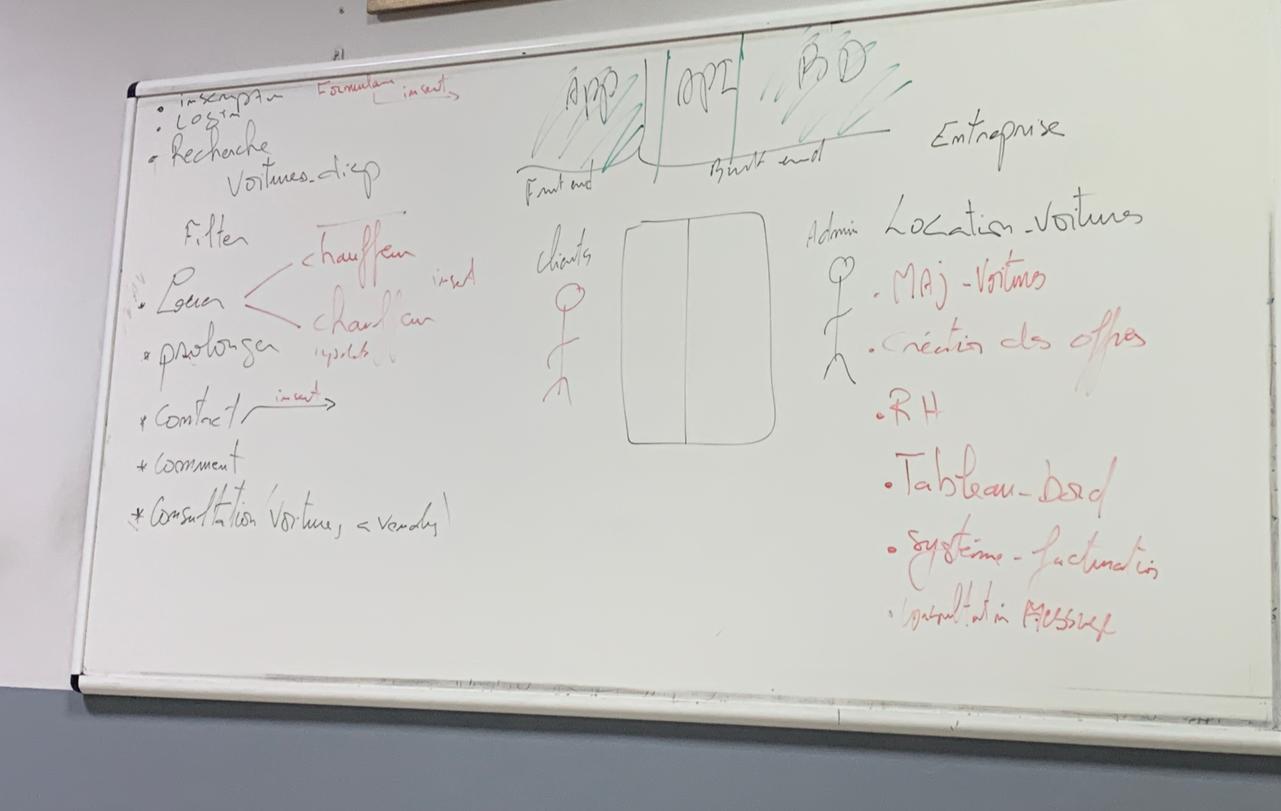 • inscription Formulaire insert
• Login
• Recherche
Voitures-disp
Filter
• Louer
chauffeur
chauffeur
insert
* prolonger
update
* Contact insert
* Comment
* Consultation (voitures a vendre)
APP API BD
Front end
Back end
clients
Admin
Entreprise
Location-voitures
• MAj-Voitures
• Création des offres
• RH
• Tableau-bord
• Système-facturation
• Consultation Message